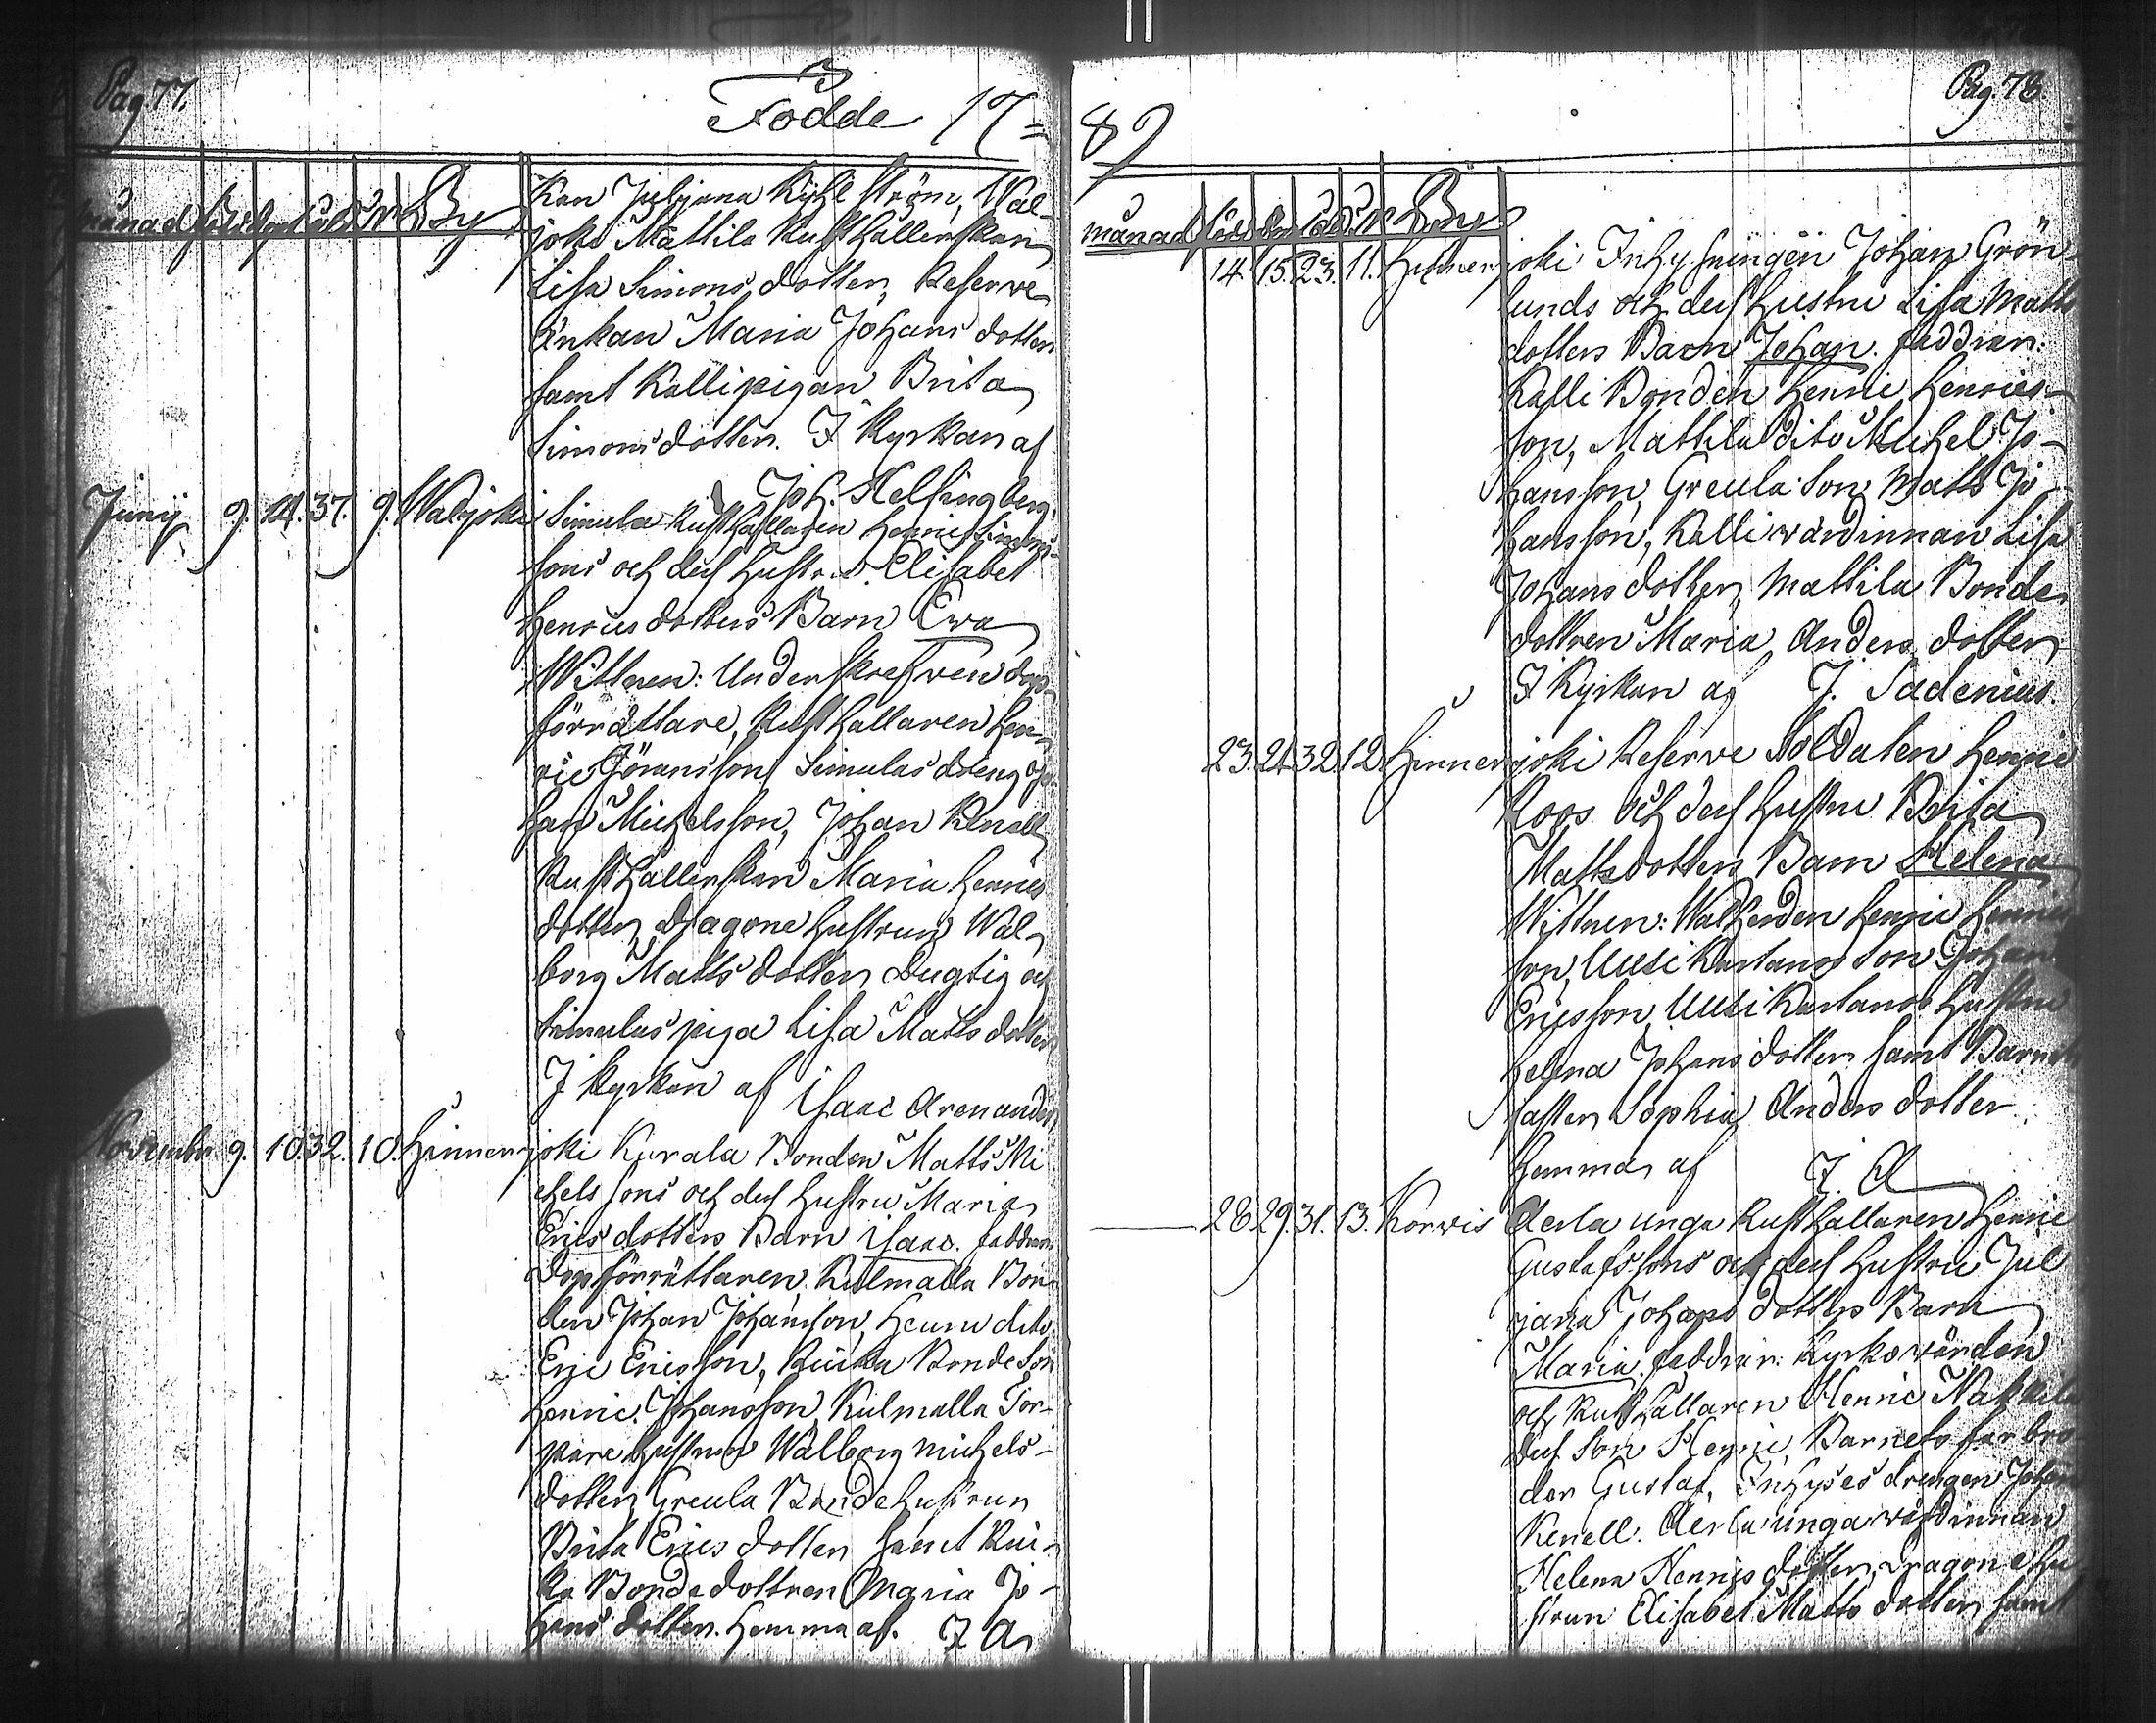 Pag 77.
Födde 17=
månad By
Kan Juljana Kyhlström, Wal-
joki Mattila Rusthållerskan
Lisa Simonsdotter, Reserve
Enkan Maria Johansdotter
samt Kallipigan Brita
Simonsdotter. I Kyrkan af
Joh. Helsingberg.
Junij 9. 14. 37. 9. Waljoki Simula Rusthållaren Henric Simons-
sons och dess hustru Elisabet
Henricsdotters Barn Ewa
Wittnen: Underskrefwen dop-
förrättare, Rusthållaren Hen-
ric Jöransson, Simulas dreng Jo-
han Michelsson, Johan Renell
Rusthållerskan Maria Henrics
dotter, Dragone hustrun Wal-
borg Mattsdotter Dugtig och
Simulas piga Lisa Matts dotter
I Kyrkan af Isaac Arenander
November 9. 10. 32. 10. Hinner joki Kurala Bonden Matts Mi
chelssons och dess hustru Maria
Erics dotters Barn Isaac. faddrar:
Dopförrättaren, Kulmalla Bon-
den Johan Johansson, Heuru dito
Eric Ericsson, Ruika Bonde Son
Henric Johansson, Kulmalla Tor-
pare hustrun Walborg Michels-
dotter, Greula Bondehustrun
Brita Erics dotter samt Rui-
ka Bondedottren Maria Jo-
hans dotter. Hemma af. I A
Pag. 78
89
månad By
14. 15. 23. 11. Hinner joki Inhysingen Johan Grön-
lunds och dess hustru Lisa Matts
dotters Barn Johan. faddrar:
Kalli Bonden Henric Henrics-
son, Mattila dito Michel Jo-
hansson, Greula Son Matts Jo-
hansson, Kalli wärdinnan Lisa
Johans dotter, Mattila Bonde
dottren Maria Anders dotter
I Kyrkan af J. Sadenius.
23. 24. 32. 12. Hinner joki Reserve Soldaten Henric
Roos och dess hustru Brita
Mattsdotters Barn Helena
Wittnen: Henric Henrics
son, Uusi Kartano Son Johan
Ericsson, Uusi Kartano hustru
Helena Johans dotter samt Barnets
faster Sophia Anders dotter
Hemma af I. A
28 29. 31. 13. Korwis Aerla unga Rusthållaren Henric
Gustafssons och dess hustru Jul
jana Johans dotters Barn
Maria. faddrar: Kyrkowärden
och Rusthållaren Henric Nakkila
dess Son Henric, Barnets farbro-
der Gustaf, Inhyses drengen Johan
Renell. Aerla unga wärdinnan
Helena Henrics dotter, Dragone hu
strun Elisabet Matts dotter samt